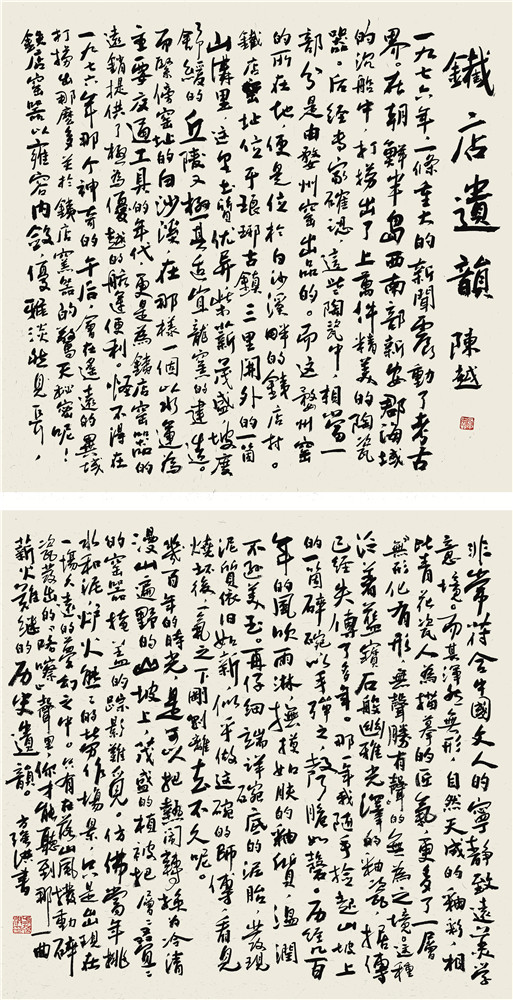 鐵店遺韻
陳越
一九七六年，一條重大的新聞震動了考古
界。在朝鮮半島西南部新安郡海域
的沉船中，打撈出了上萬件精美的陶瓷
器。后經专家確認，這些陶瓷中，相當一
部分是由婺州窑出品的。而這婺州窑
的所在地，便是位於白沙溪畔的鐵店村。
鐵店窑址位于琅琊古鎮三里開外的一箇
山溝里，这里土質优异，柴薪茂盛，坡度
舒緩的丘陵又極其适宜龍窑的建造。
而緊傍窑址的白沙溪，在那樣一個以水運為
主要交通工具的年代，更是為鐵店窑器的
遠銷提供了極為優越的航運便利。怪不得在
一九七六年那个神奇的午后，會在遥遠的異域
打撈出那麽多关於鐵店窑器的驚天秘密呢！
鐵店窑器以雍容内斂，優雅淡然見長，
非常符合中國文人的寧静致遠美学
意境。而其渾然無形，自然天成的釉彩，相
比青花瓷人為描摹的匠氣，更多了一層
無形化有形，無聲勝有聲的無為之境。這種
泛着藍寶石般幽雅光澤的釉瓷，据傳
已經失傳了多年。那一年我隨手拾起山坡上
的一箇碎碗，以手彈之，聲脆如磬。历经百
年的風吹雨淋，撫摸如肤的釉質，温潤
不遜美玉。再仔细端詳碗底的泥胎，發現
泥質依旧如新，似乎做這碗的師傅，看見
燒坯後一氣之下剛剛離去不久呢。
幾百年的時光，是可以把熱鬧轉换为冷清
漫山遍野的山坡上，茂盛的植被把層層疊疊
的窑器掩盖的踪影難覓。仿佛當年挑
水和泥，炉火熊熊的勞作場景，只是出現在
一場久遠的夢幻之中。只有在落山風撥動碎
瓷發出的嗒嗦聲里，你才能聽到那一曲
薪火難继的历史遺韻。